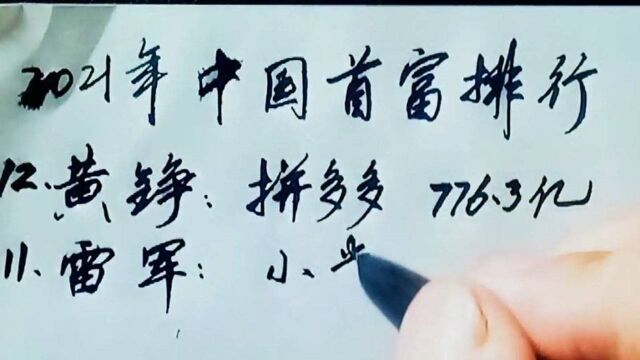 2021年中国首富排行
12.黄铮:拼多多 776.3亿
11.雷军:小